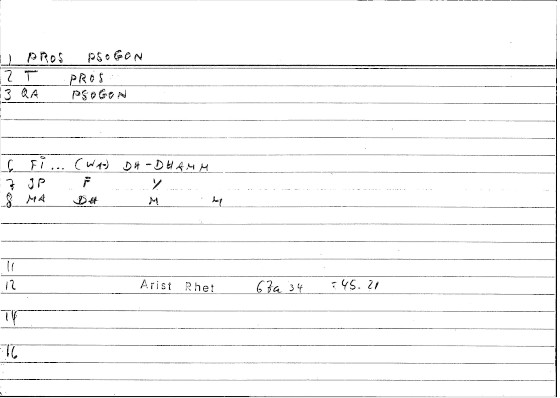 1 PROS PSOGON
2 T PROS
3 QA PSOGON
6 FI... (WA-) DH-DHAMM
7 JP F Y
8 MA DH M M
11
12 Arist Rhet 67a 34 = 45. 21
14
16